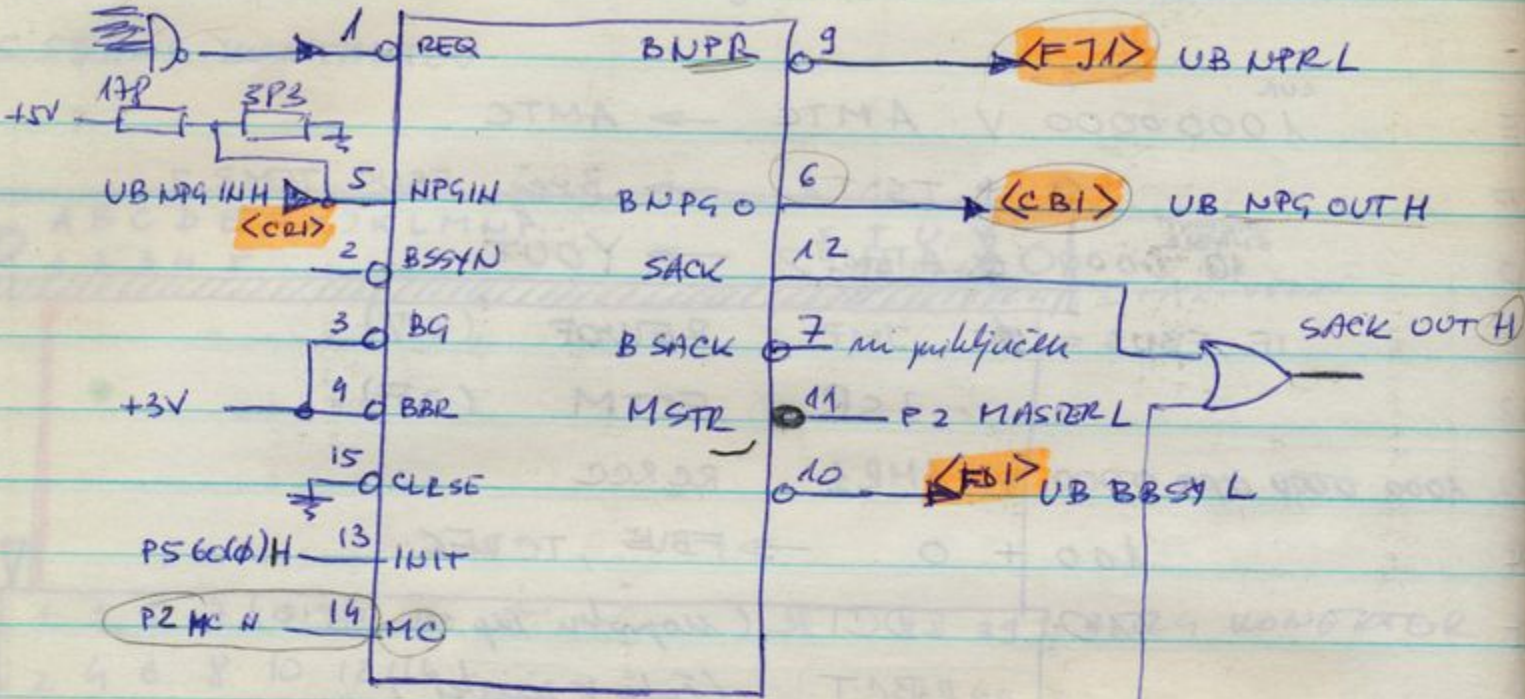 1 REQ BNPR 9 <FJ1> UB NPR L
+5V 178 3P3
UB NPG IN H 5 NPGIN BNPGO 6 <CB1> UB NPG OUT H
<CA1>
2 BSSYN SACK 12
3 BG BSACK 7 ni priključen SACK OUT H
+3V 4 BBR MSTR 11 P2 MASTER L
15 CLRSE 10 <FD1> UB BBSY L
P5 GO(φ)H 13 INIT
P2 MC H 14 MC